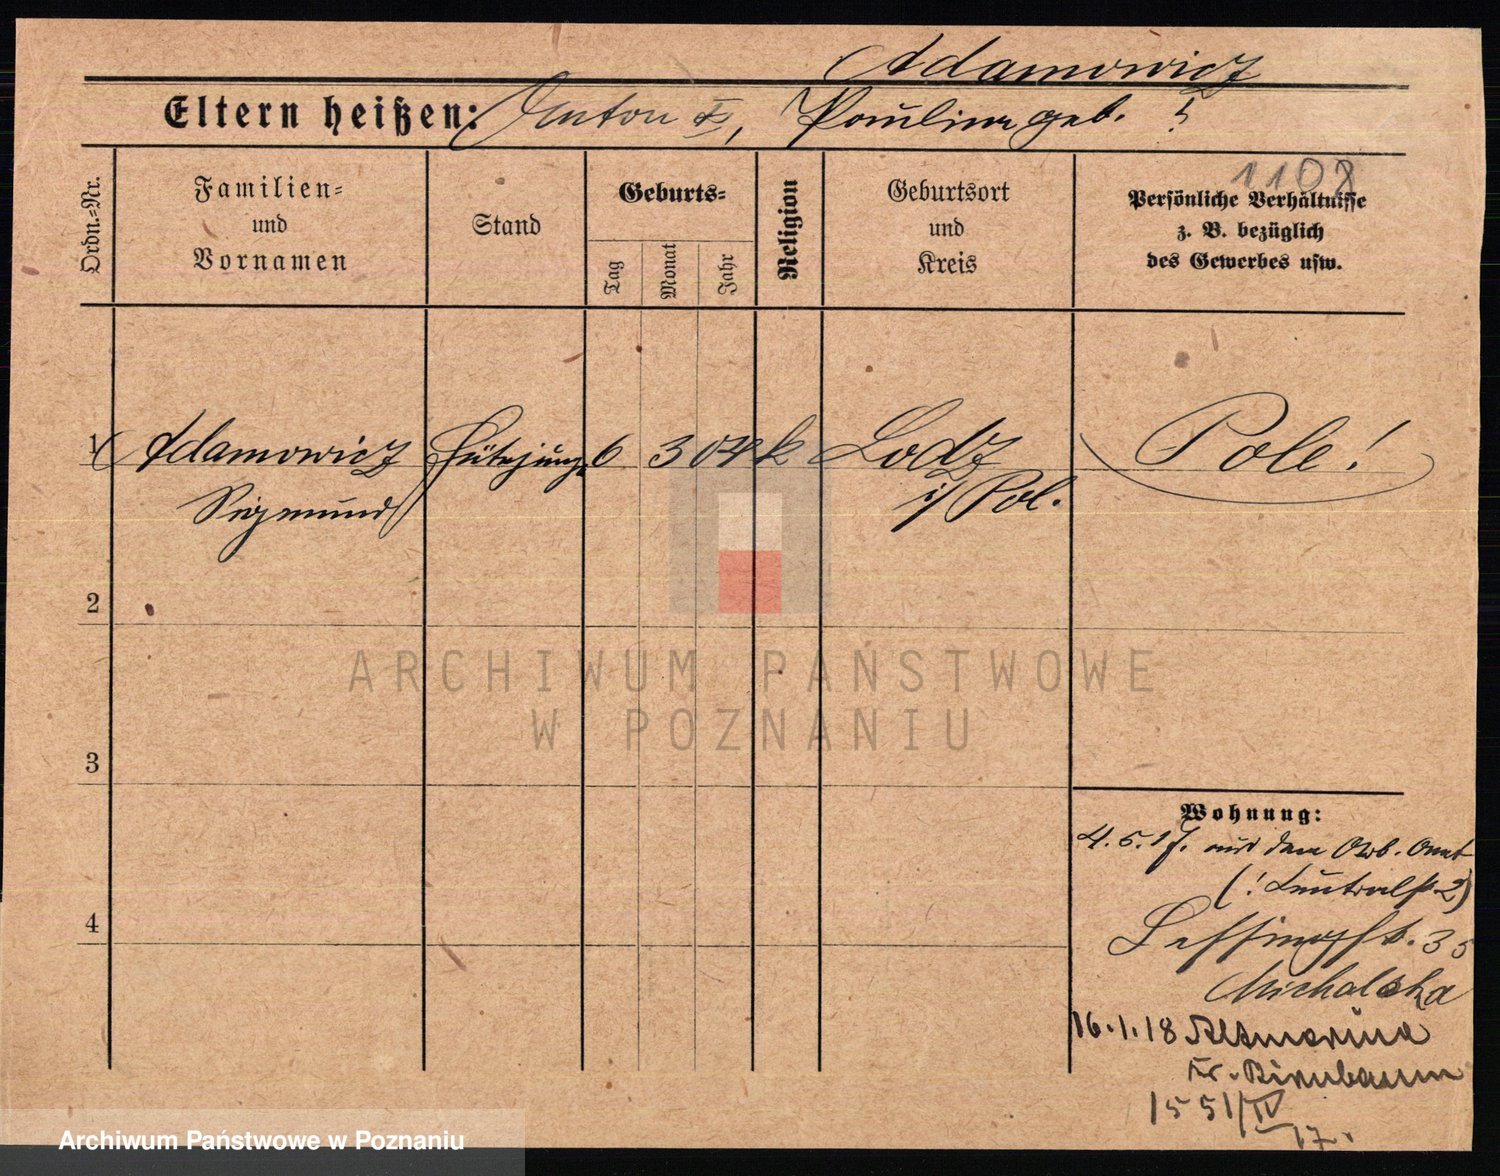 Adamowicz
Eltern heißen: Anton †, Pauline geb. ?
1108
Ordn.=Nr.
Familien=
und
Vornamen
Stand
Geburts=
Tag
Monat
Jahr
Religion
Geburtsort
und
Kreis
Persönliche Verhältnisse
z. B. bezüglich
des Gewerbes usw.
1 Adamowicz Hütejunge 6 3 04 k Lodz Pole!
Sigmund i/ Pol.
2
3
4
Wohnung:
4. 5. 17. aus dem Arb. Amt
(! Zentralst. 2)
Lessingst. 35
Michalska
16.1.18
Kr. Birnbaum
1551/IV
17.
ARCHIWUM PAŃSTWOWE
W POZNANIU
Archiwum Państwowe w Poznaniu